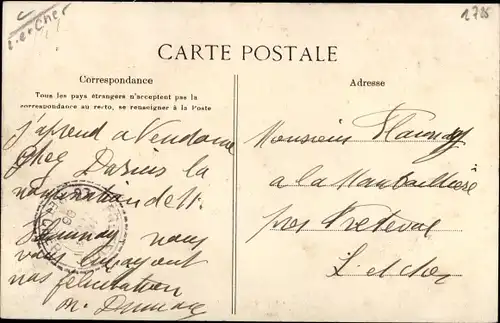 L. et Cher
1725
CARTE POSTALE
Correspondance
Tous les pays étrangers n'acceptent pas la
correspondance au recto, se renseigner à la Poste
J'aprend a Vendome
Chez Darius la
nommination de M.
nous
vous envoyons
nos félicitation
m.
Adresse
Monsieur
a la
pres Freteval
L. et Cher